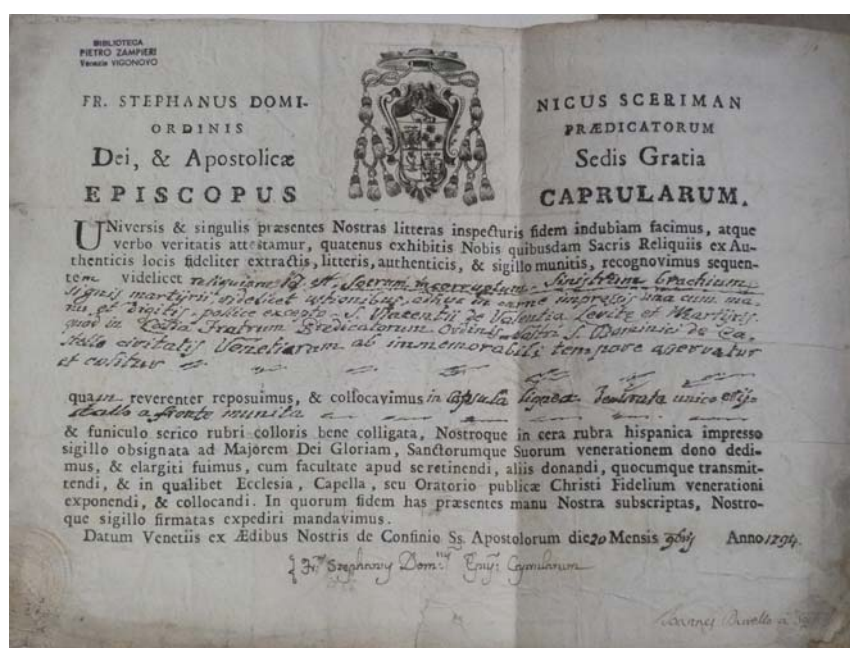 BIBLIOTECA
PIETRO ZAMPIERI
Venezia VIGONOVO
FR. STEPHANUS DOMI-
NICUS SCERIMAN
ORDINIS
PRÆDICATORUM
Dei, & Apostolicæ
Sedis Gratia
EPISCOPUS
CAPRULARUM.
UNiversis & singulis præsentes Nostras litteras inspecturis fidem indubiam facimus, atque
verbo veritatis attestamur, quatenus exhibitis Nobis quibusdam Sacris Reliquiis ex Au-
thenticis locis fideliter extractis, litteris, authenticis, & sigillo munitis, recognovimus sequen-
tem videlicet reliquiam id est, Sacrum incorruptum Sinistrum brachium
signis martyrii, videlicet ustionibus, adhuc in carne impressis una cum ma-
nu et digitis, pollice excepto S. Vincentii de Valentia Levite et Martyris.
quod in Fratrum Predicatorum Ordinis S. Dominici de Ca-
stello civitatis Venetiarum ab immemorabili tempore
et colitur
quam reverenter reposuimus, & collocavimus in capsula lignea unico cris-
tallo a fronte munita
& funiculo serico rubri colloris bene colligata, Nostroque in cera rubra hispanica impresso
sigillo obsignata ad Majorem Dei Gloriam, Sanctorumque Suorum venerationem dono dedi-
mus, & elargiti fuimus, cum facultate apud se retinendi, aliis donandi, quocumque transmit-
tendi, & in qualibet Ecclesia, Capella, seu Oratorio publicæ Christi Fidelium venerationi
exponendi, & collocandi. In quorum fidem has præsentes manu Nostra subscriptas, Nostro-
que sigillo firmatas expediri mandavimus.
Datum Venetiis ex Ædibus Nostris de Confinio Ss. Apostolorum die 20 Mensis 9bris Anno 1794.
Fr. Stephanus Dom.
Joannes